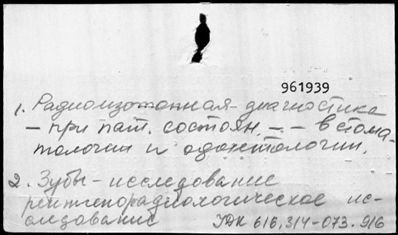 961939
1. Радиоизотопная диагностика
- при пат. состоян. - - в стома-
тологии и одонтологии.
2. Зубы - исследование
рентгенорадиологическое ис-
следование УДК 616,314-073.916